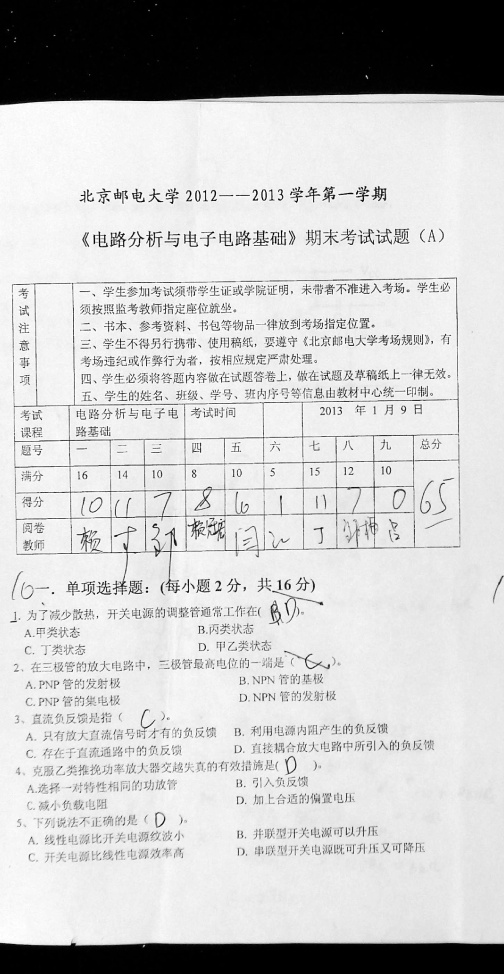 北京邮电大学 2012——2013 学年第一学期
《电路分析与电子电路基础》期末考试试题（A）
考试注意事项
一、学生参加考试须带学生证或学院证明，未带者不准进入考场。学生必
须按照监考教师指定座位就坐。
二、书本、参考资料、书包等物品一律放到考场指定位置。
三、学生不得另行携带、使用稿纸，要遵守《北京邮电大学考场规则》，有
考场违纪或作弊行为者，按相应规定严肃处理。
四、学生必须将答题内容做在试题答卷上，做在试题及草稿纸上一律无效。
五、学生的姓名、班级、学号、班内序号等信息由教材中心统一印制。
考试课程 电路分析与电子电路基础 考试时间 2013 年 1 月 9 日
题号 一 二 三 四 五 六 七 八 九 总分
满分 16 14 10 8 10 5 15 12 10
得分 10 11 7 8 6 1 11 7 0 65
阅卷教师
10 一. 单项选择题：(每小题 2 分，共 16 分)
1. 为了减少散热，开关电源的调整管通常工作在( D )。
A.甲类状态 B.丙类状态
C. 丁类状态 D. 甲乙类状态
2、在三极管的放大电路中，三极管最高电位的一端是（ C ）。
A. PNP 管的发射极 B. NPN 管的基极
C. PNP 管的集电极 D. NPN 管的发射极
3、直流负反馈是指（ C ）。
A. 只有放大直流信号时才有的负反馈 B. 利用电源内阻产生的负反馈
C. 存在于直流通路中的负反馈 D. 直接耦合放大电路中所引入的负反馈
4、克服乙类推挽功率放大器交越失真的有效措施是( D )。
A.选择一对特性相同的功放管 B. 引入负反馈
C. 减小负载电阻 D. 加上合适的偏置电压
5、下列说法不正确的是（ D ）。
A. 线性电源比开关电源纹波小 B. 并联型开关电源可以升压
C. 开关电源比线性电源效率高 D. 串联型开关电源既可升压又可降压